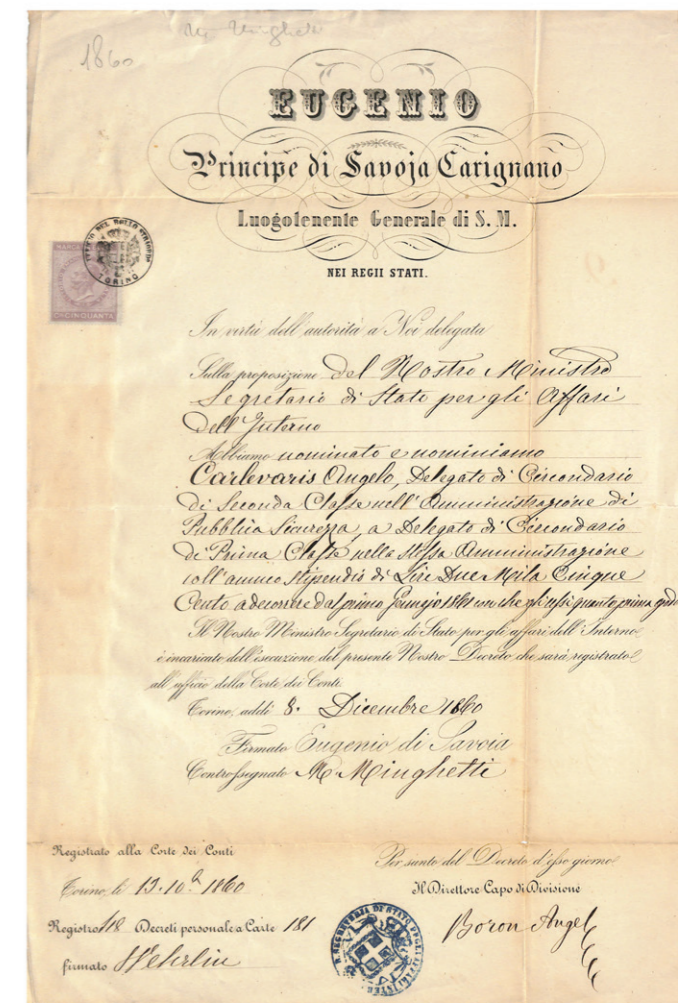 1860
M. Minghetti
EUGENIO
Principe di Savoja Carignano
Luogotenente Generale di S. M.
NEI REGII STATI.
TORINO
CINQUANTA
In virtù dell'autorità a Noi delegata
Sulla proposizione del Nostro Ministro
Segretario di Stato per gli Affari
dell'Interno
Abbiamo nominato e nominiamo
Carlevaris Angelo, Delegato di Circondario
di Seconda Classe nell'Amministrazione di
Pubblica Sicurezza, a Delegato di Circondario
di Prima Classe nella stessa Amministrazione
coll'annuo stipendio di Lire Due Mila Cinque
Cento a decorrere dal primo Gennajo 1861
Il Nostro Ministro Segretario di Stato per gli affari dell'Interno
è incaricato dell'esecuzione del presente Nostro Decreto che sarà registrato
all'ufficio della Corte dei Conti.
Torino, addì 8. Dicembre 1860
Firmato Eugenio di Savoia
Controssegnato M. Minghetti
Registrato alla Corte dei Conti
Torino, li 13. 10.e 1860
Registro 118 Decreti personale a Carte 181
firmato Wehrlin
Per sunto del Decreto d'esso giorno
Il Direttore Capo di Divisione
Boron Angel